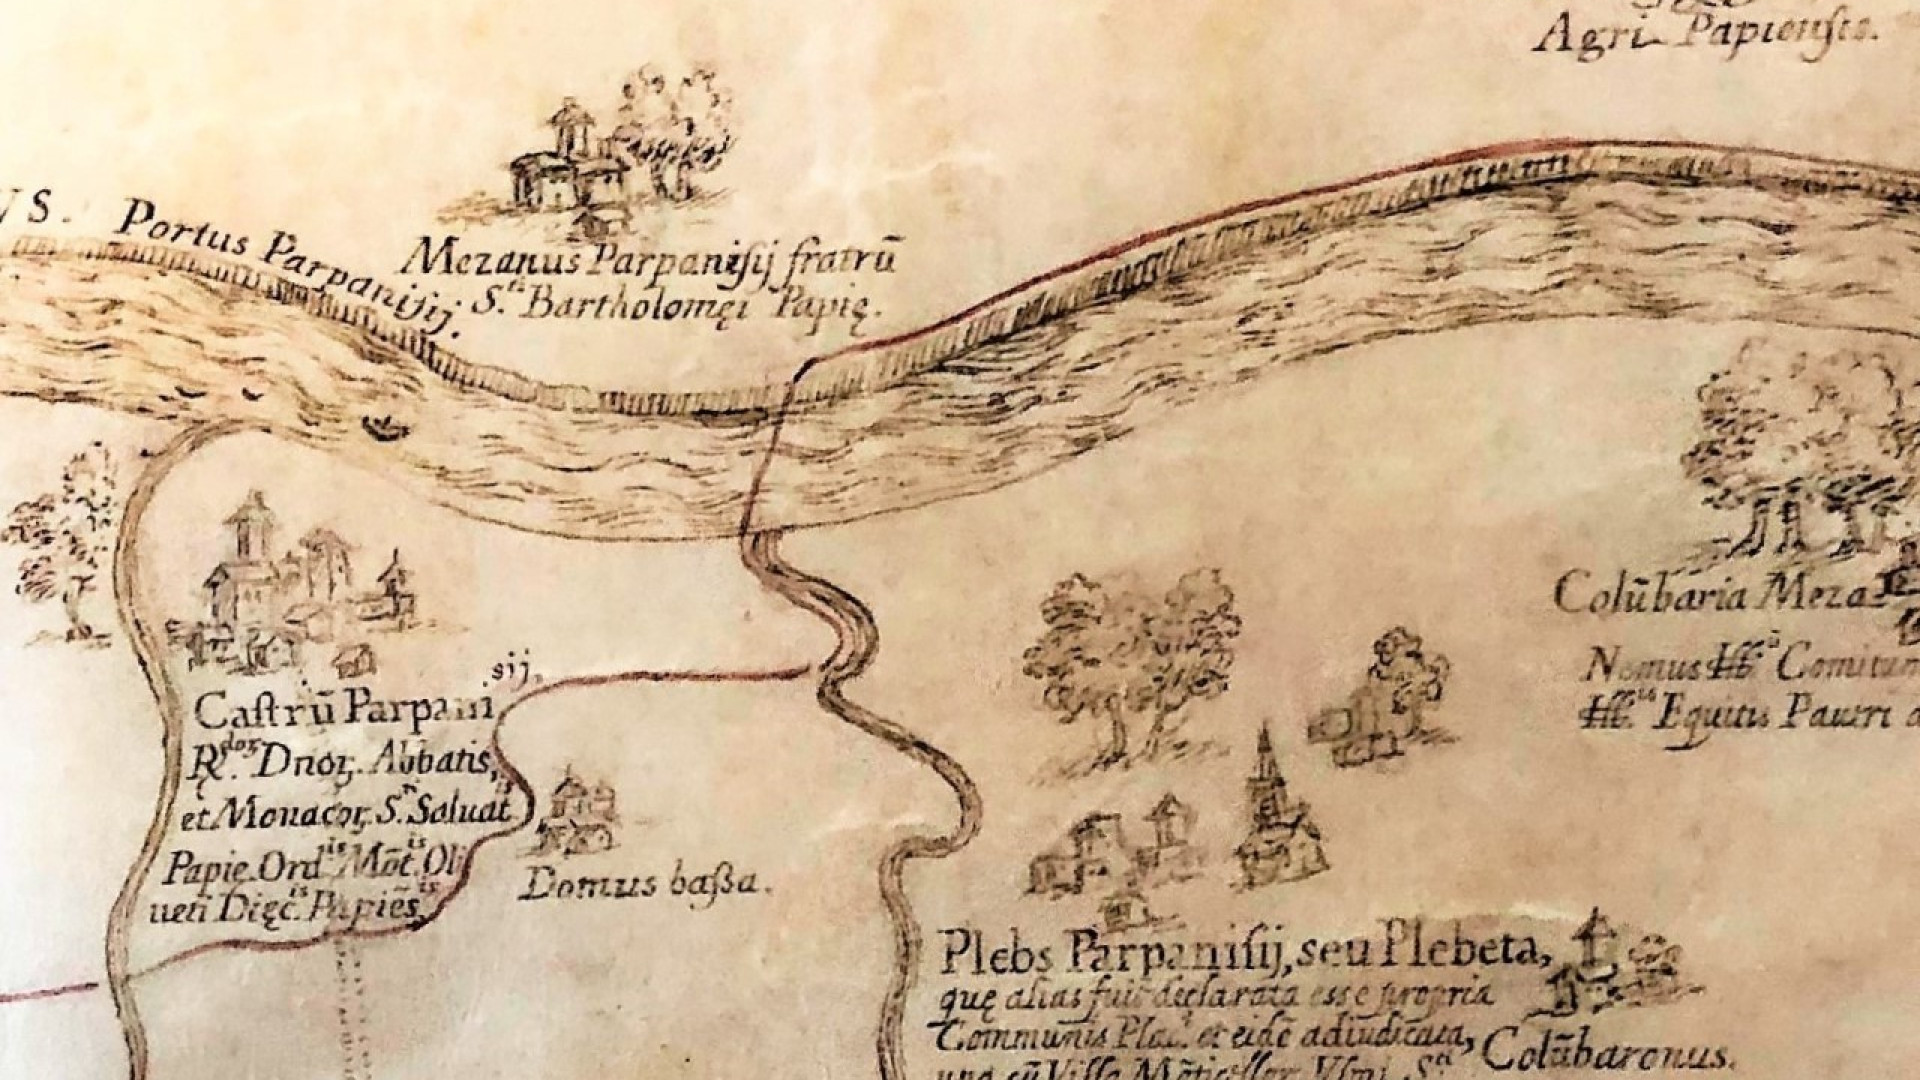 Agri Papiensis.
VS. Portus Parpanisij.
Mezanus Parpanisij fratrū
S.ti Bartholomęi Papię.
Colūbaria Meza
Nemus Comitum
Equitis
Castrū Parpanisij,
R.dor Dnoꝝ. Abbatis,
et Monacoꝝ. S.ti Saluat.is
Papie. Ord.is Mōt.is Oli
ueti Dięc.is Papiēs.is
Domus baßa.
Plebs Parpanisij, seu Plebeta,
quę alias fuit declarata esse propria
Communis Plac. et eidē adiudicata,
Colūbaronus.
unā cū Villa